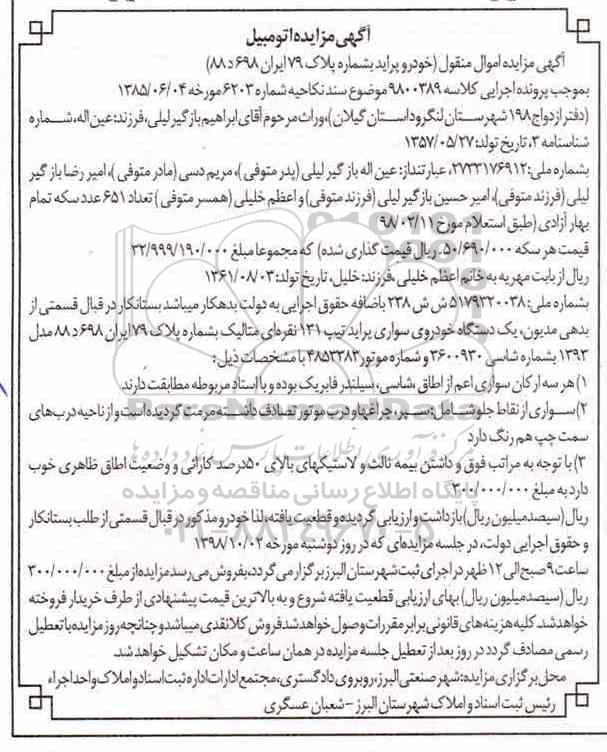 آگهی مزایده اتومبیل
آگهی مزایده اموال منقول (خودرو پراید بشماره پلاک ۷۹ ایران ۶۹۸ د ۸۸)
بموجب پرونده اجرایی کلاسه ۹۸۰۰۳۸۹ موضوع سند نکاحیه شماره ۶۲۰۳ مورخه ۱۳۸۵/۰۶/۰۴
(دفتر ازدواج ۱۹۸ شهرستان لنگرود استان گیلان)، وراث مرحوم آقای ابراهیم بازگیر لیلی، فرزند: عین اله، شماره
شناسنامه ۳، تاریخ تولد: ۱۳۵۷/۰۵/۲۷
بشماره ملی: ۲۷۳۳۱۷۶۹۱۲، عبارتنداز: عین اله باز گیر لیلی (پدر متوفی)، مریم دسی (مادر متوفی)، امیر رضا باز گیر
لیلی (فرزند متوفی)، امیر حسین باز گیر لیلی (فرزند متوفی) و اعظم خلیلی (همسر متوفی) تعداد ۶۵۱ عدد سکه تمام
بهار آزادی (طبق استعلام مورخ ۹۸/۰۲/۱۱
قیمت هر سکه ۵۰/۶۹۰/۰۰۰. ریال قیمت گذاری شده) که مجموعا مبلغ ۳۲/۹۹۹/۱۹۰/۰۰۰
ریال از بابت مهریه به خانم اعظم خلیلی، فرزند: خلیل، تاریخ تولد: ۱۳۶۱/۰۸/۰۳
بشماره ملی: ۵۱۷۹۳۲۰۰۳۸ ش ش ۲۳۸ باضافه حقوق اجرایی به دولت بدهکار میباشد بستانکار در قبال قسمتی از
بدهی مدیون، یک دستگاه خودروی سواری پراید تیپ ۱۳۱ نقره‌ای متالیک بشماره پلاک ۷۹ ایران ۶۹۸ د ۸۸ مدل
۱۳۹۳ بشماره شاسی ۳۶۰۰۹۳۰ و شماره موتور ۴۸۵۳۳۸۳ با مشخصات ذیل:
۱) هر سه ارکان سواری اعم از اطاق، شاسی، سیلندر فابریک بوده و با اسناد مربوطه مطابقت دارند
۲) سواری از نقاط جلو شامل: سپر، چراغها و درب موتور تصادف داشته مرمت گردیده است و از ناحیه درب های
سمت چپ هم رنگ دارد
۳) با توجه به مراتب فوق و داشتن بیمه ثالث و لاستیکهای بالای ۵۰ درصد کارائی و وضعیت اطاق ظاهری خوب
دارد به مبلغ ۳۰۰/۰۰۰/۰۰۰
ریال (سیصد میلیون ریال) بازداشت و ارزیابی گردیده و قطعیت یافته، لذا خودرو مذکور در قبال قسمتی از طلب بستانکار
و حقوق اجرایی دولت، در جلسه مزایده‌ای که در روز دوشنبه مورخه ۱۳۹۸/۱۰/۰۲
ساعت ۹ صبح الی ۱۲ ظهر در اجرای ثبت شهرستان البرز برگزار می گردد، بفروش می رسد مزایده از مبلغ ۳۰۰/۰۰۰/۰۰۰
ریال (سیصد میلیون ریال) بهای ارزیابی قطعیت یافته شروع و به بالاترین قیمت پیشنهادی از طرف خریدار فروخته
خواهد شد. کلیه هزینه های قانونی برابر مقررات وصول خواهد شد فروش کلا نقدی میباشد و چنانچه روز مزایده با تعطیل
رسمی مصادف گردد در روز بعد از تعطیل جلسه مزایده در همان ساعت و مکان تشکیل خواهد شد.
محل برگزاری مزایده: شهر صنعتی البرز، روبروی دادگستری، مجتمع ادارات اداره ثبت اسناد و املاک واحد اجراء
رئیس ثبت اسناد و املاک شهرستان البرز - شعبان عسگری
ParsNamadData
پایگاه اطلاع رسانی مناقصه و مزایده